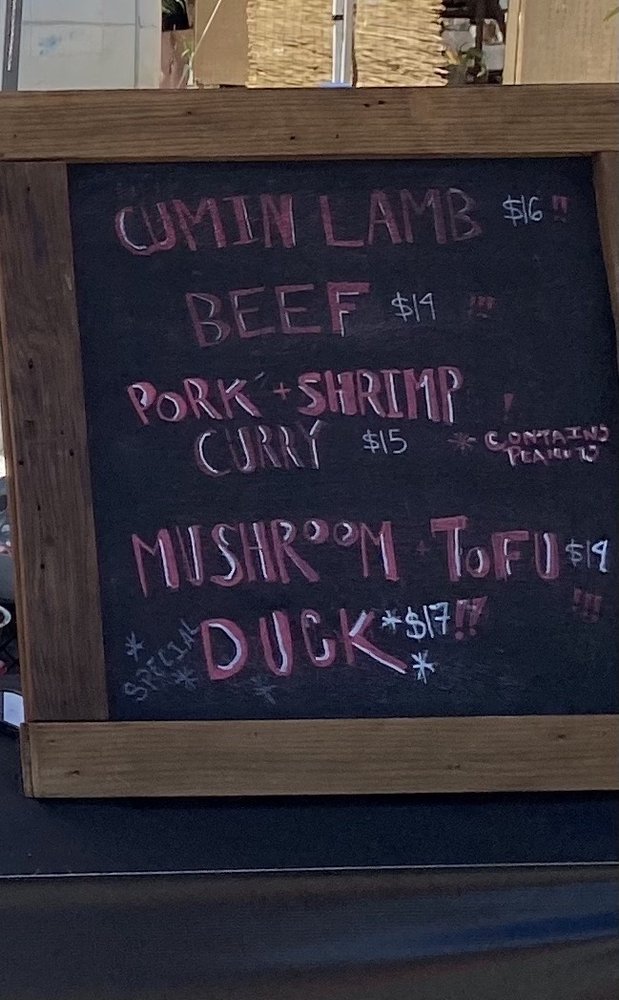 CUMIN LAMB $16 !!
BEEF $14 !!!
PORK + SHRIMP !
CURRY $15 * CONTAINS
PEANUTS
MUSHROOM + TOFU $14
!!!
*SPECIAL* DUCK * $17 !!